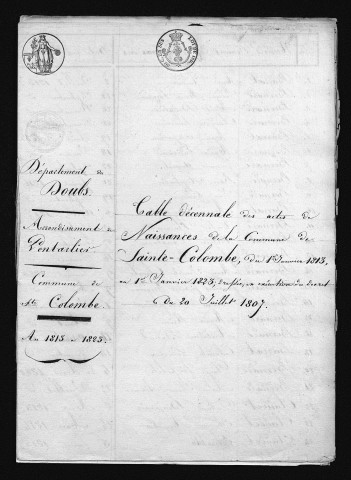 Département du
Doubs.
Arrondissement de
Pontarlier.
Commune de
Ste Colombe.
An 1813 à 1823.
Table décennale des actes de
Naissances de la Commune de
Sainte-Colombe, du 1er Janvier 1813,
au 1er Janvier 1823, dressée, en exécution du décret
du 20 Juillet 1807.